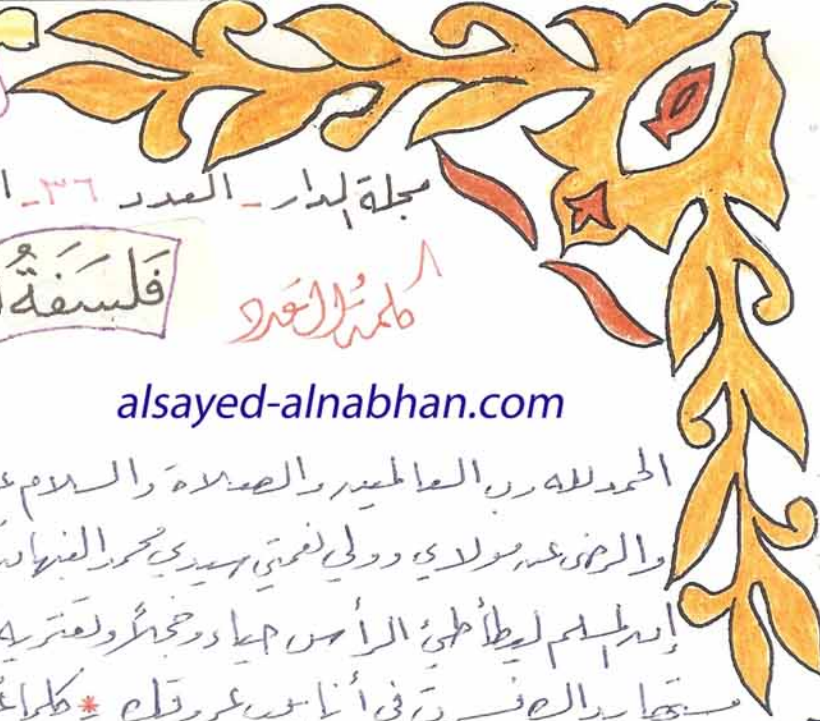 مجلة الدار - العدد ٣٦ -
كلمة العدد
فَلسَفَةُ
alsayed-alnabhan.com
الحمد لله رب العالمين والصلاة والسلام
والرضى عن مولاي وولي نعمتي سيدي محمد النبهان
إن المسلم ليطأطئ الرأس حياء وخجلاً وتعتريه
في * كلما